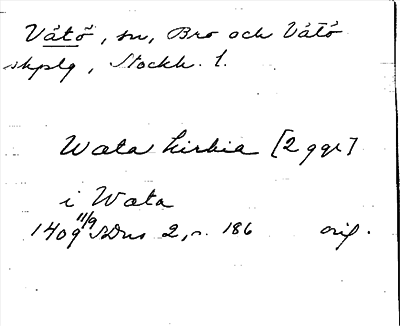 Vätö, sn, Bro och Vätö
skplg, Stockh. l.
Wata kirkia [2 ggr]
i Wata
1409 11/9 SDns 2, s. 186 orig.